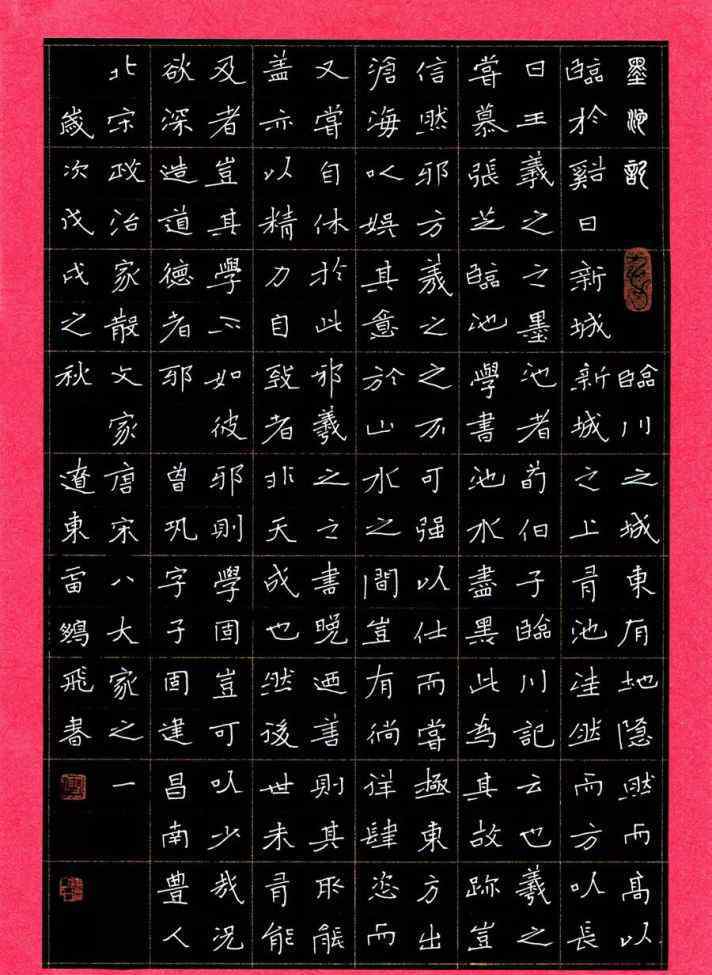 墨池記 臨川之城東有地隱然而高以
臨於谿曰新城新城之上有池洼然而方以長
曰王羲之之墨池者荀伯子臨川記云也羲之
嘗慕張芝臨池學書池水盡黑此為其故跡豈
信然邪方羲之之不可强以仕而嘗極東方出
滄海以娛其意於山水之間豈有徜徉肆恣而
又嘗自休於此邪羲之之書晚迺善則其所能
盖亦以精力自致者非天成也然後世未有能
及者豈其學不如彼邪則學固豈可以少哉況
欲深造道德者邪 曾巩字子固建昌南豊人
北宋政治家散文家唐宋八大家之一
歲次戊戌之秋 遼東雷飛書